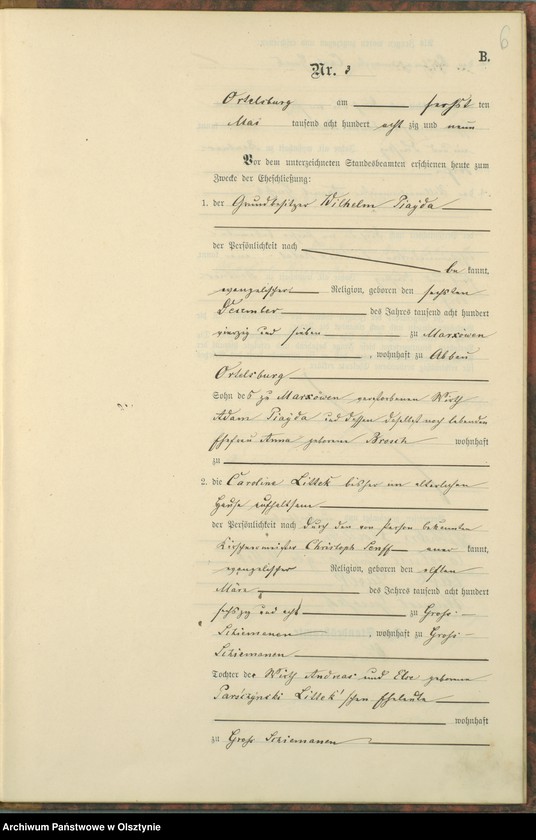 6
B.
Nr. 3
Ortelsburg am sechsten
Mai tausend acht hundert achtzig und neun
Vor dem unterzeichneten Standesbeamten erschienen heute zum
Zwecke der Eheschließung:
1. der Grundbesitzer Wilhelm Piayda
der Persönlichkeit nach
bekannt,
evangelischer Religion, geboren den sechsten
Dezember des Jahres tausend acht hundert
vierzig und sieben zu Marxöwen
, wohnhaft zu Abbau
Ortelsburg
Sohn des zu Marxöwen verstorbenen Wirth
Adam Piayda und dessen daselbst noch lebenden
Ehefrau Anna geborene Brosch wohnhaft
zu
2. die Caroline Littek bisher im elterlichen
Hause aufhaltsam
der Persönlichkeit nach durch den von Person bekannten
Kirschnermeister Christoph aner kannt,
evangelischer Religion, geboren den elften
März des Jahres tausend acht hundert
sechszig und acht zu Groß-
Schiemanen, wohnhaft zu Groß-
Schiemanen
Tochter der Wirth Andreas und geborene
Paroczynski Littek'schen Eheleute
wohnhaft
zu Groß Schiemanen
Archiwum Państwowe w Olsztynie